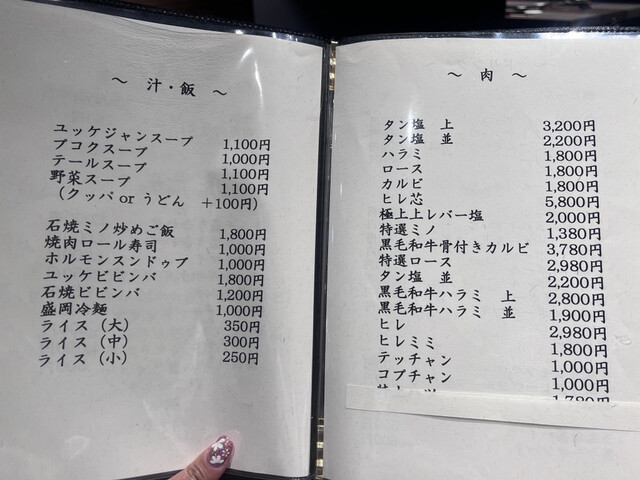 ～ 汁・飯 ～
ユッケジャンスープ 1,100円
プコクスープ 1,000円
テールスープ 1,100円
野菜スープ 1,100円
（クッパ or うどん ＋100円）
石焼ミノ炒めご飯 1,800円
焼肉ロール寿司 1,000円
ホルモンスンドゥブ 1,000円
ユッケビビンバ 1,800円
石焼ビビンバ 1,200円
盛岡冷麺 1,000円
ライス（大） 350円
ライス（中） 300円
ライス（小） 250円
～ 肉 ～
タン塩 上 3,200円
タン塩 並 2,200円
ハラミ 1,800円
ロース 1,800円
カルビ 1,800円
ヒレ芯 5,800円
極上上レバー塩 2,000円
特選ミノ 1,380円
黒毛和牛骨付きカルビ 3,780円
特選ロース 2,980円
タン塩 並 2,200円
黒毛和牛ハラミ 上 2,800円
黒毛和牛ハラミ 並 1,900円
ヒレ 2,980円
ヒレミミ 1,800円
テッチャン 1,000円
コプチャン 1,000円